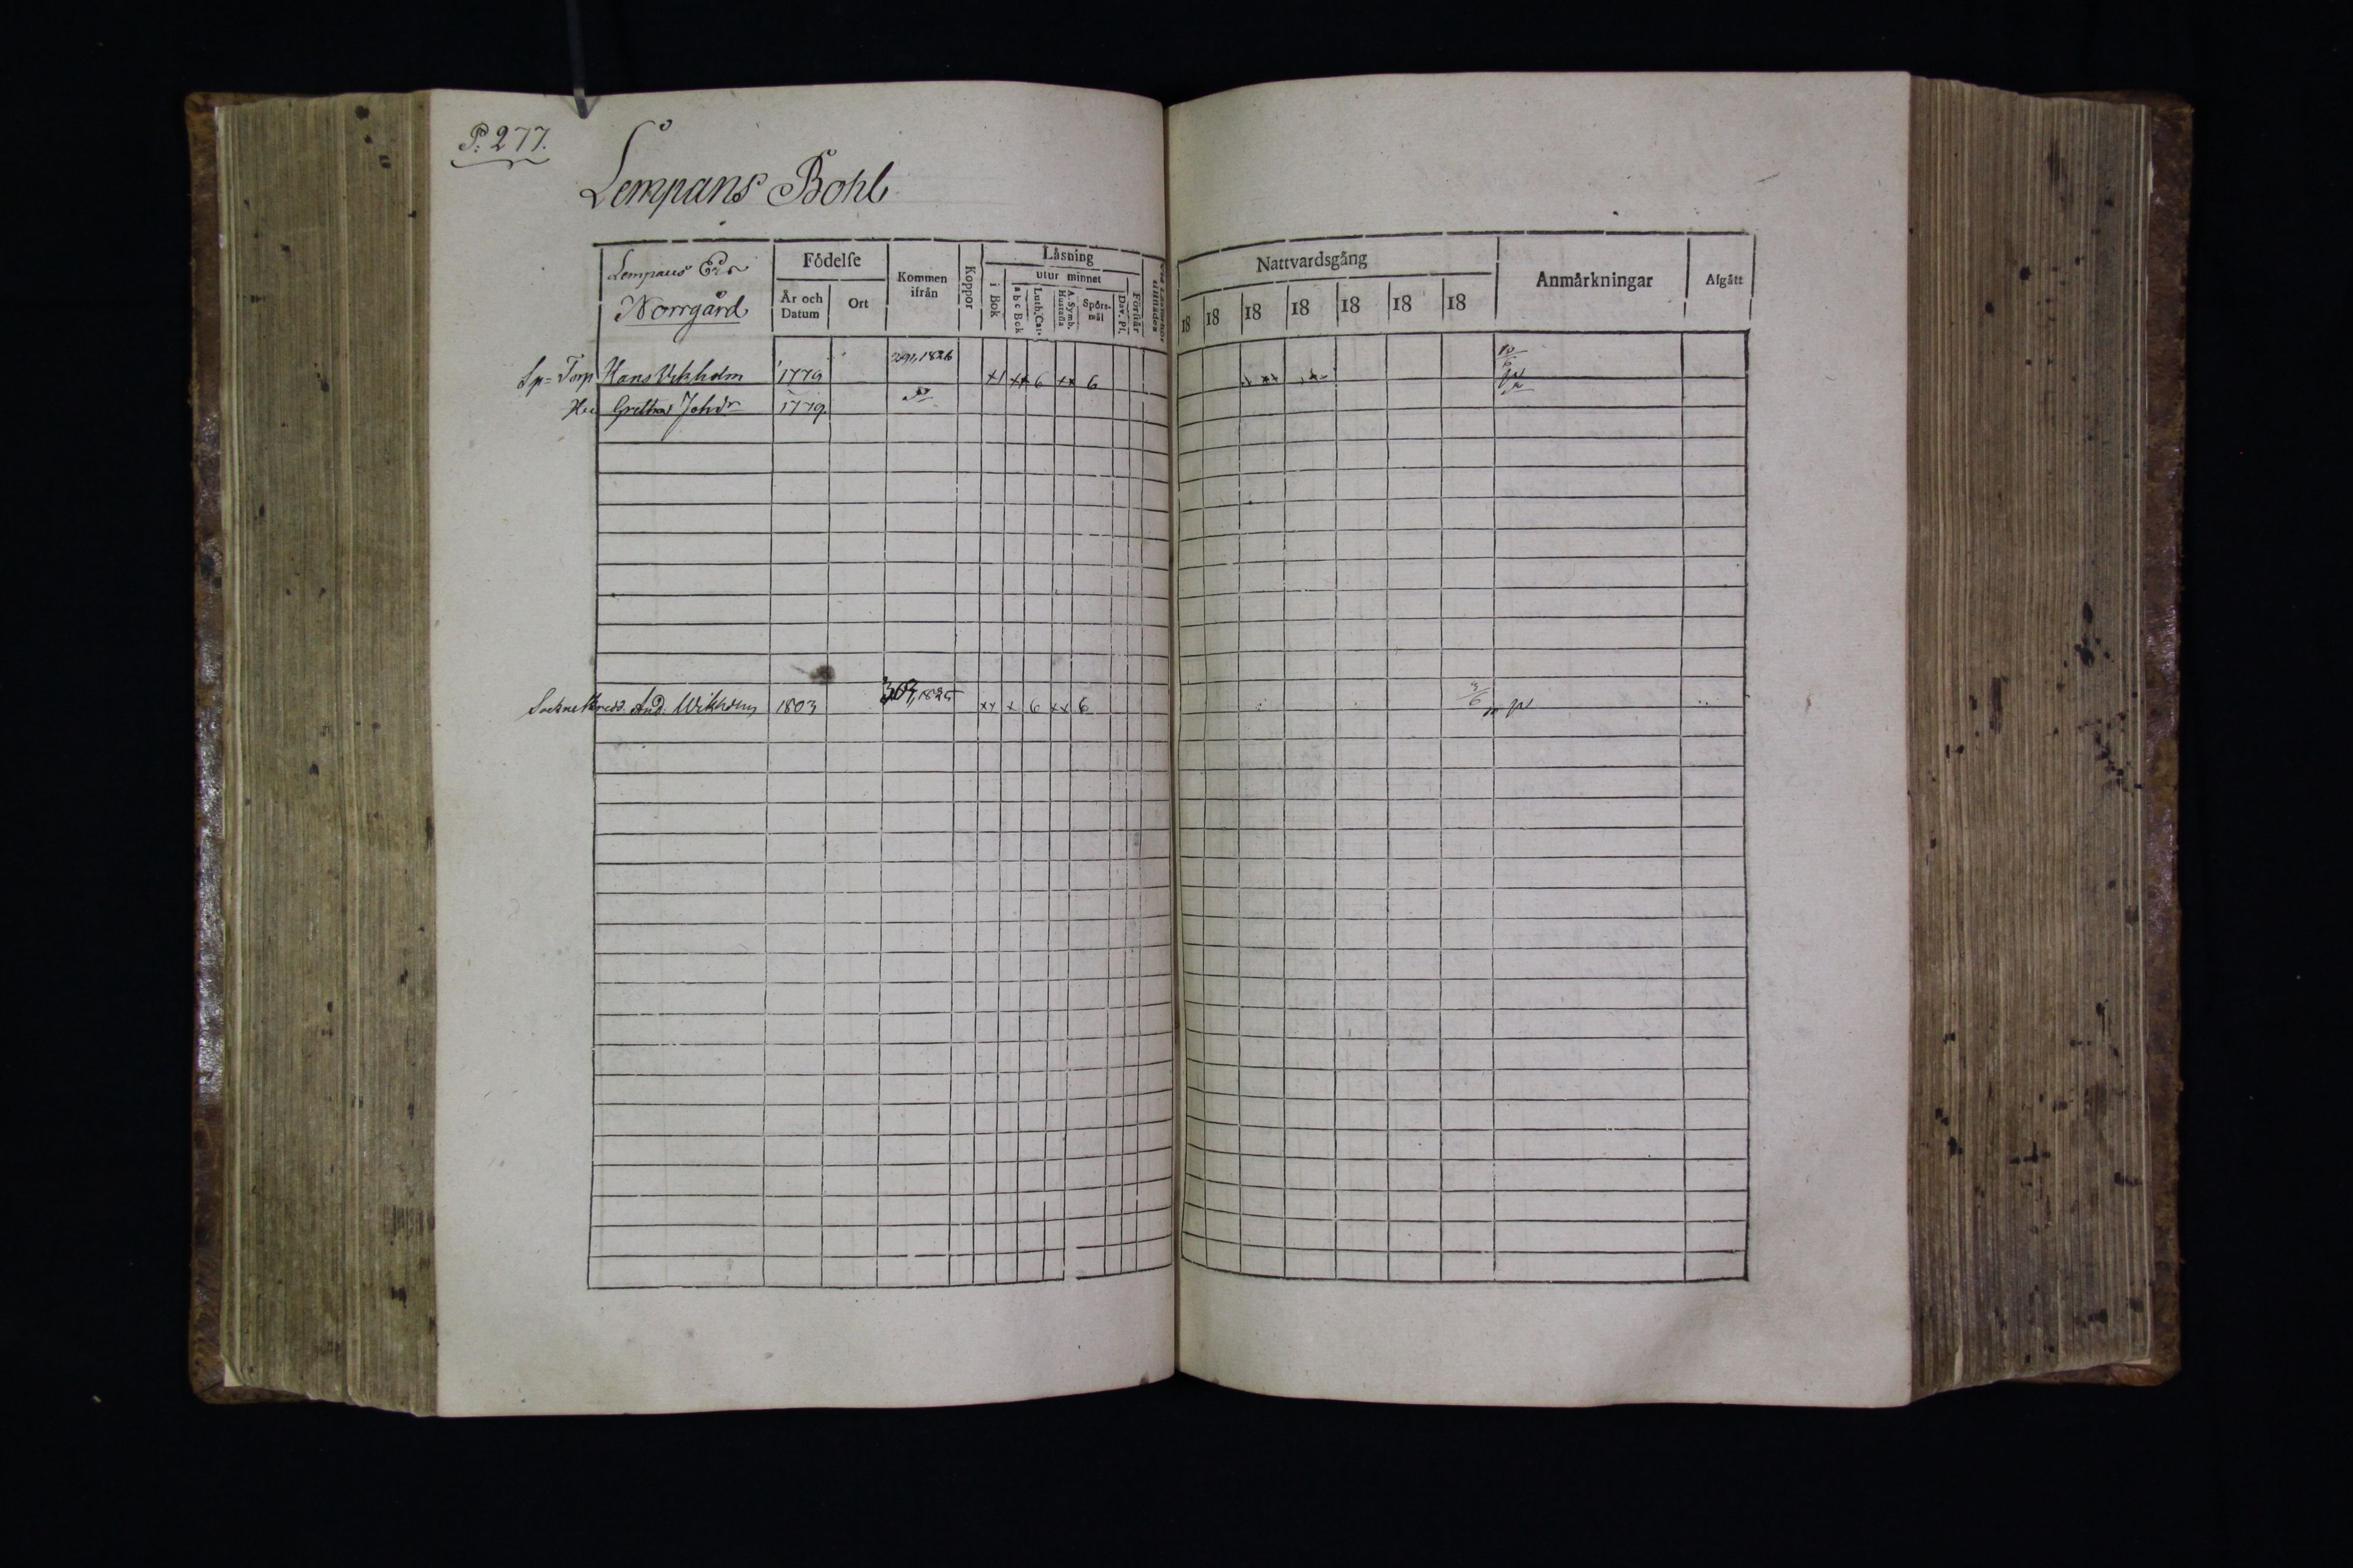 P. 277.
Lempans Bohl
Lempans
Norrgård
Födelse
År och Datum
Ort
Kommen ifrån
Koppor
Läsning
i Bok
utur minnet
a b c Bok
Luth. Cat.
A. Symb. Hustafla
Spörsmål
Dav. Ps.
Förstår
Nattvardsgång
18 18 18 18 18 18 18
Anmärkningar
Afgått
Sp= Torp Hans Vikholm 1779 291, 1826 x1 xx 6 xx 6
Hu Gretha Johdr 1779
Sockne And. Wikholm 1803 303, 1825 xx x 6 xx 6